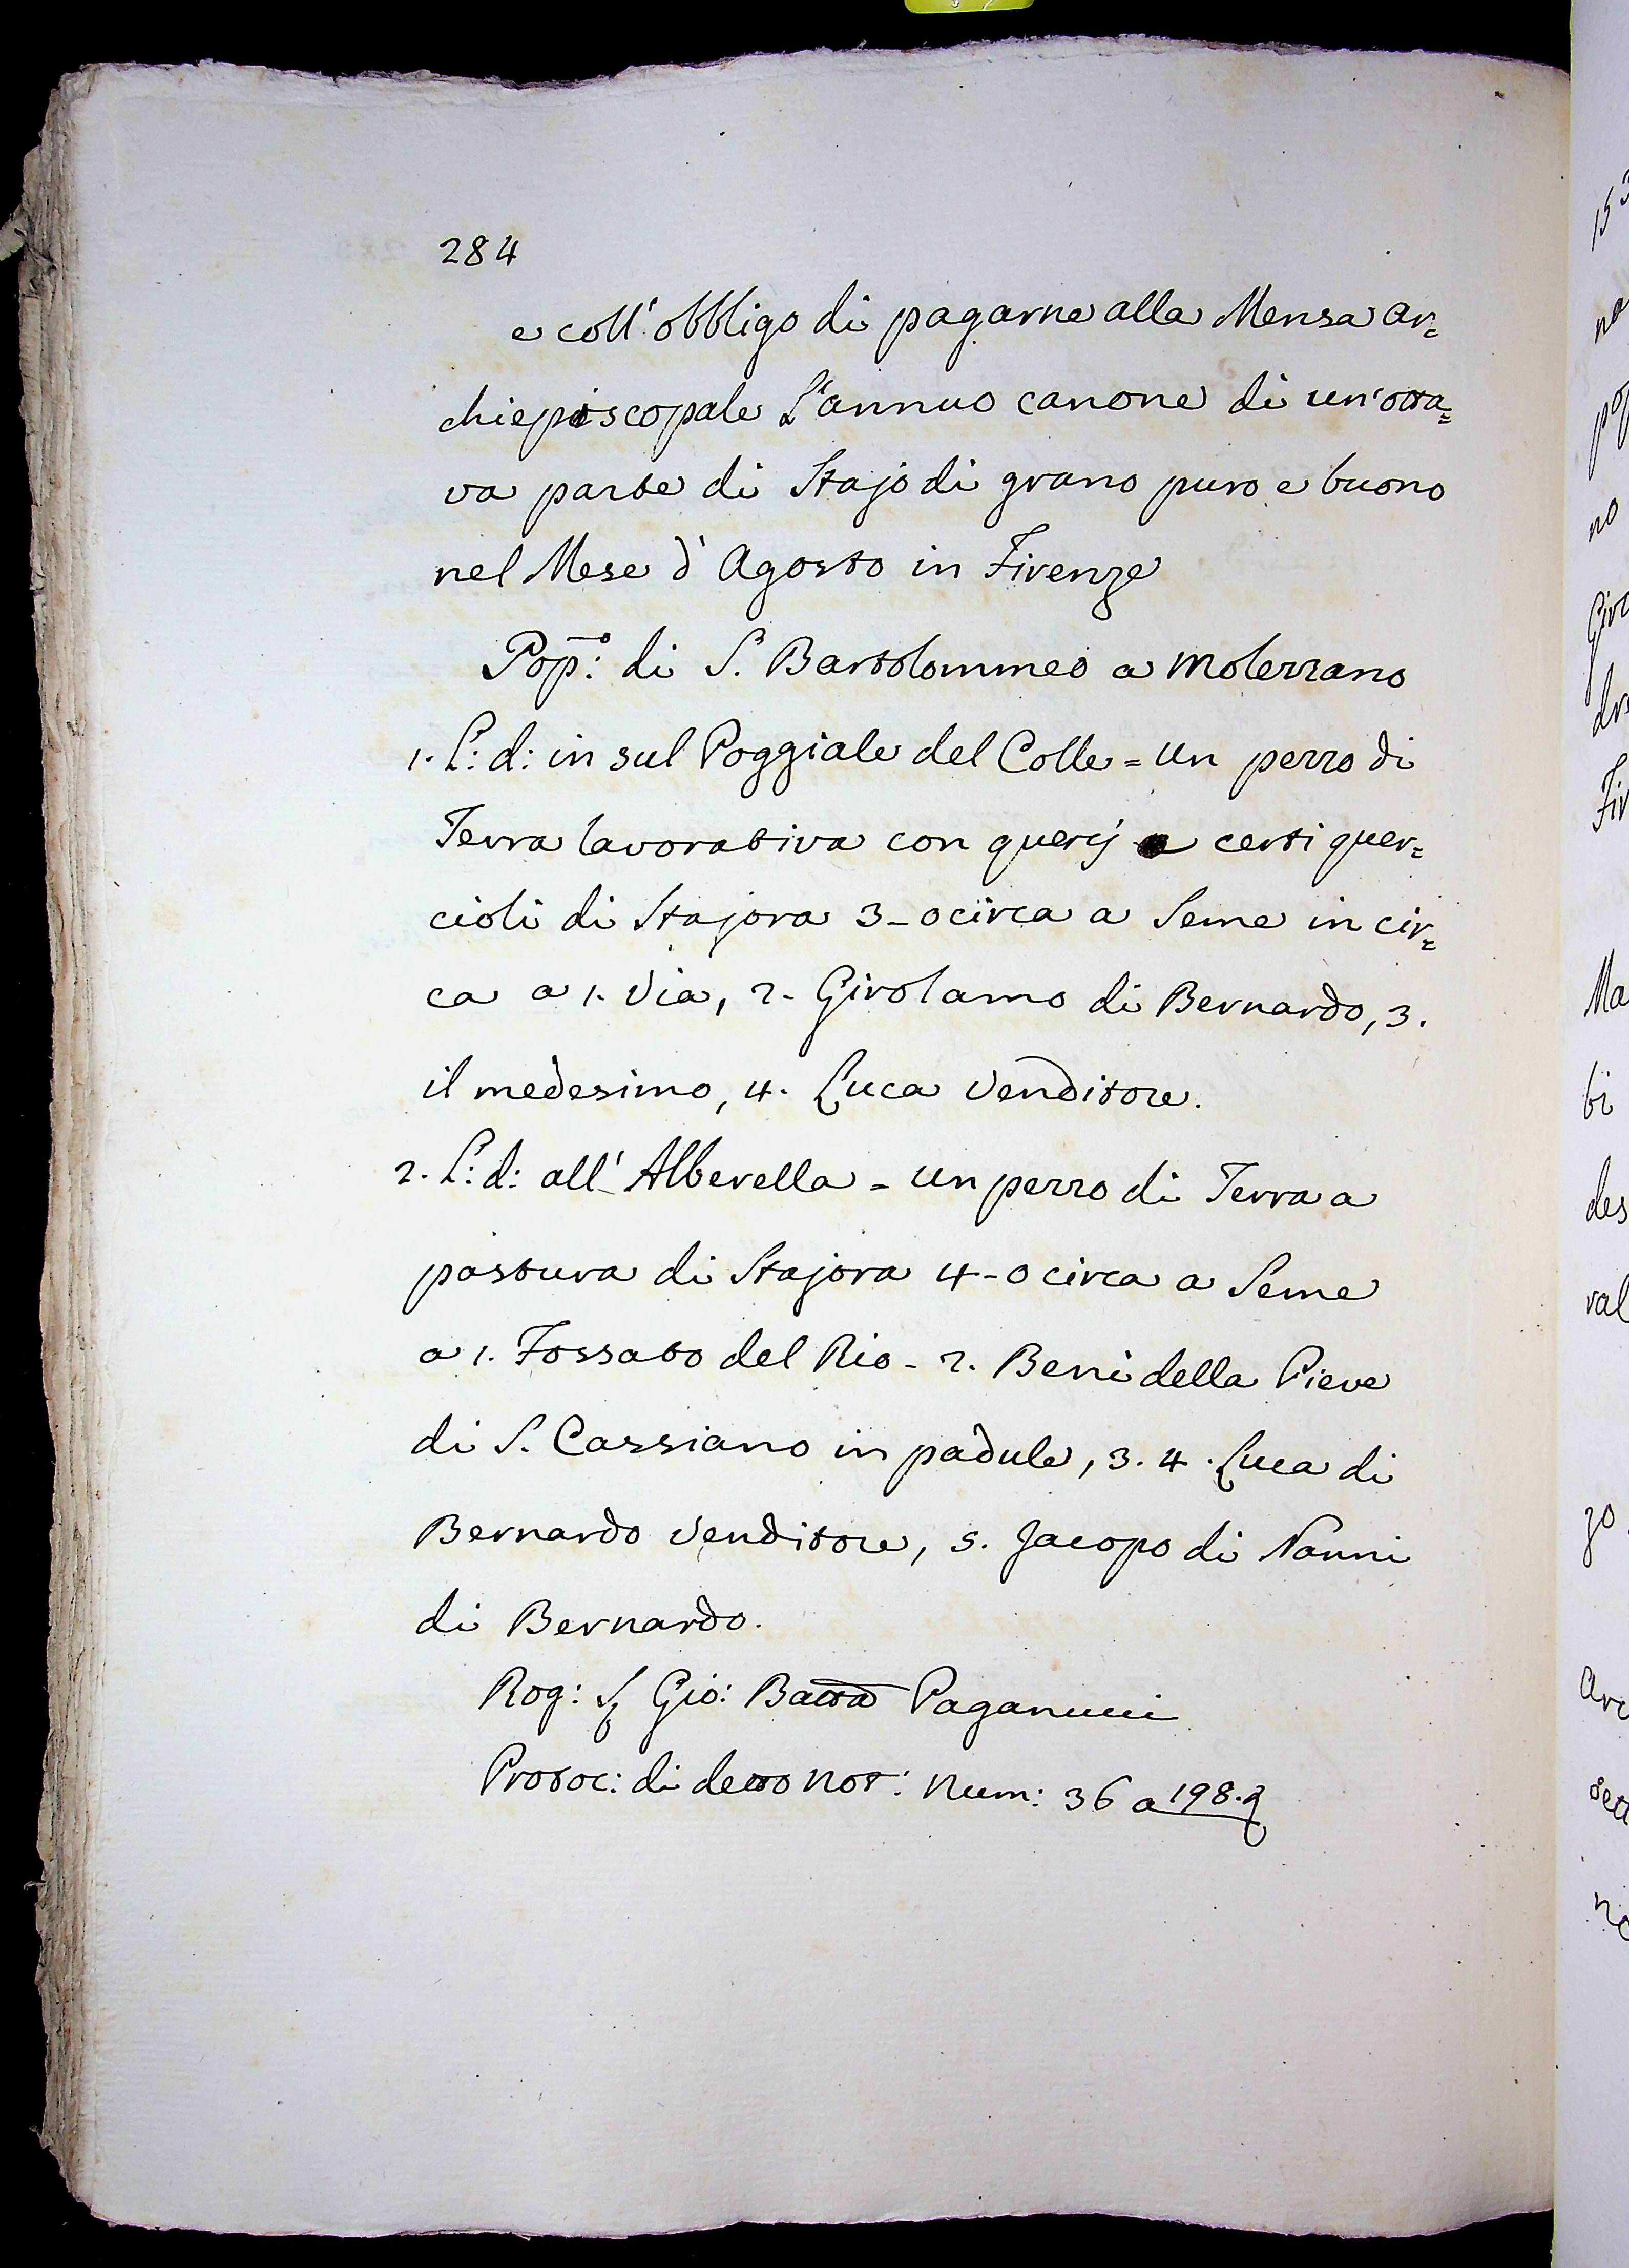 284
e coll' obbligo di pagarne alla Mensa Ar=
chiepiscopale L'annuo canone di un' otta=
va parte di Stajo di grano puro e buono
nel Mese d' Agosto in Firenze
Pop.º: di S. Bartolommeo a Molezzano
1. L: d: in sul Poggiale del Colle = Un pezzo di
Terra lavorativa con querçj e certi quer=
cioli di Stajora 3-0 circa a Seme in cir=
ca a 1. Via, 2. Girolamo di Bernardo, 3.
il medesimo, 4. Luca Venditore.
2. L: d: all' Alberella = Un pezzo di Terra a
pastura di Stajora 4-0 circa a Seme
a 1. Fossato del Rio - 2. Beni della Pieve
di S. Cassiano in padule, 3. 4. Luca di
Bernardo Venditore, 5. Jacopo di Nanni
di Bernardo.
Rog: Sʳ Gio: Batta Paganucci
Protoc: di detto Not: Num: 36 a 198.